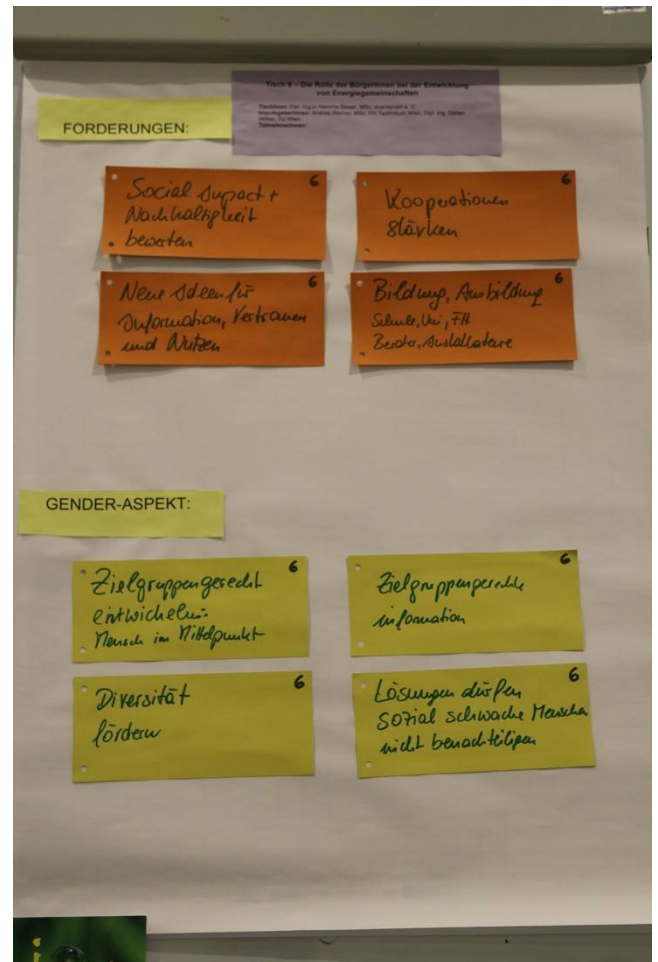 Tisch 6 – Die Rolle der BürgerInnen bei der Entwicklung
von Energiegemeinschaften
FORDERUNGEN:
Social Impact +
Nachhaltigkeit
bewerten
6
Kooperationen
stärken
6
Neue Ideen für
Information, Vertrauen
und Nutzen
6
Bildung, Ausbildung
Schule, Uni, FH
Berater, Installateure
6
GENDER-ASPEKT:
Zielgruppengerecht
entwickeln:
Mensch im Mittelpunkt
6
Zielgruppengerechte
information
6
Diversität
fördern
6
Lösungen dürfen
sozial schwache Menschen
nicht benachteiligen
6